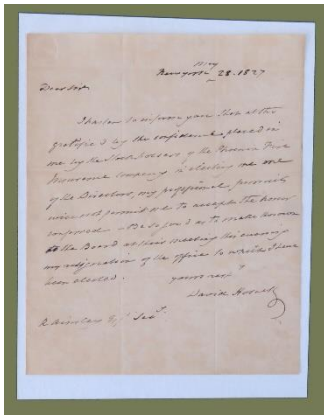 May
New york 28. 1827
Dear Sir
I hasten to inform you that altho
gratified by the confidence placed in
me by the Stockholders of the Phoenix Fire
Insurance Company in electing me one
of the Directors, my professional
will not permit me to accept the honor
Be so good as to make known
to the Board at their meeting this evening
my resignation of the office to which I have
been elected.
yours
David Hosack
Esqr. Secy.